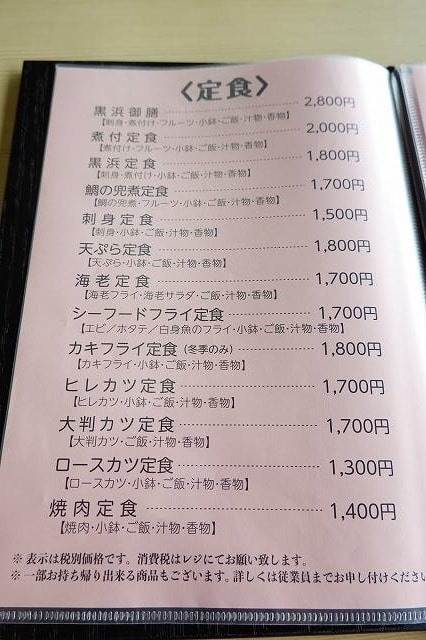 〈定食〉
黒浜御膳 2,800円
【刺身・煮付け・フルーツ・小鉢・ご飯・汁物・香物】
煮付定食 2,000円
【煮付け・フルーツ・小鉢・ご飯・汁物・香物】
黒浜定食 1,800円
【刺身・煮付け・小鉢・ご飯・汁物・香物】
鯛の兜煮定食 1,700円
【鯛の兜煮・フルーツ・小鉢・ご飯・汁物・香物】
刺身定食 1,500円
【刺身・小鉢・ご飯・汁物・香物】
天ぷら定食 1,800円
【天ぷら・小鉢・ご飯・汁物・香物】
海老定食 1,700円
【海老フライ・海老サラダ・ご飯・汁物・香物】
シーフードフライ定食 1,700円
【エビ／ホタテ／白身魚のフライ・小鉢・ご飯・汁物・香物】
カキフライ定食(冬季のみ) 1,800円
【カキフライ・小鉢・ご飯・汁物・香物】
ヒレカツ定食 1,700円
【ヒレカツ・小鉢・ご飯・汁物・香物】
大判カツ定食 1,700円
【大判カツ・ご飯・汁物・香物】
ロースカツ定食 1,300円
【ロースカツ・小鉢・ご飯・汁物・香物】
焼肉定食 1,400円
【焼肉・小鉢・ご飯・汁物・香物】
※ 表示は税別価格です。消費税はレジにてお願い致します。
※ 一部お持ち帰り出来る商品もございます。詳しくは従業員までお申し付けください